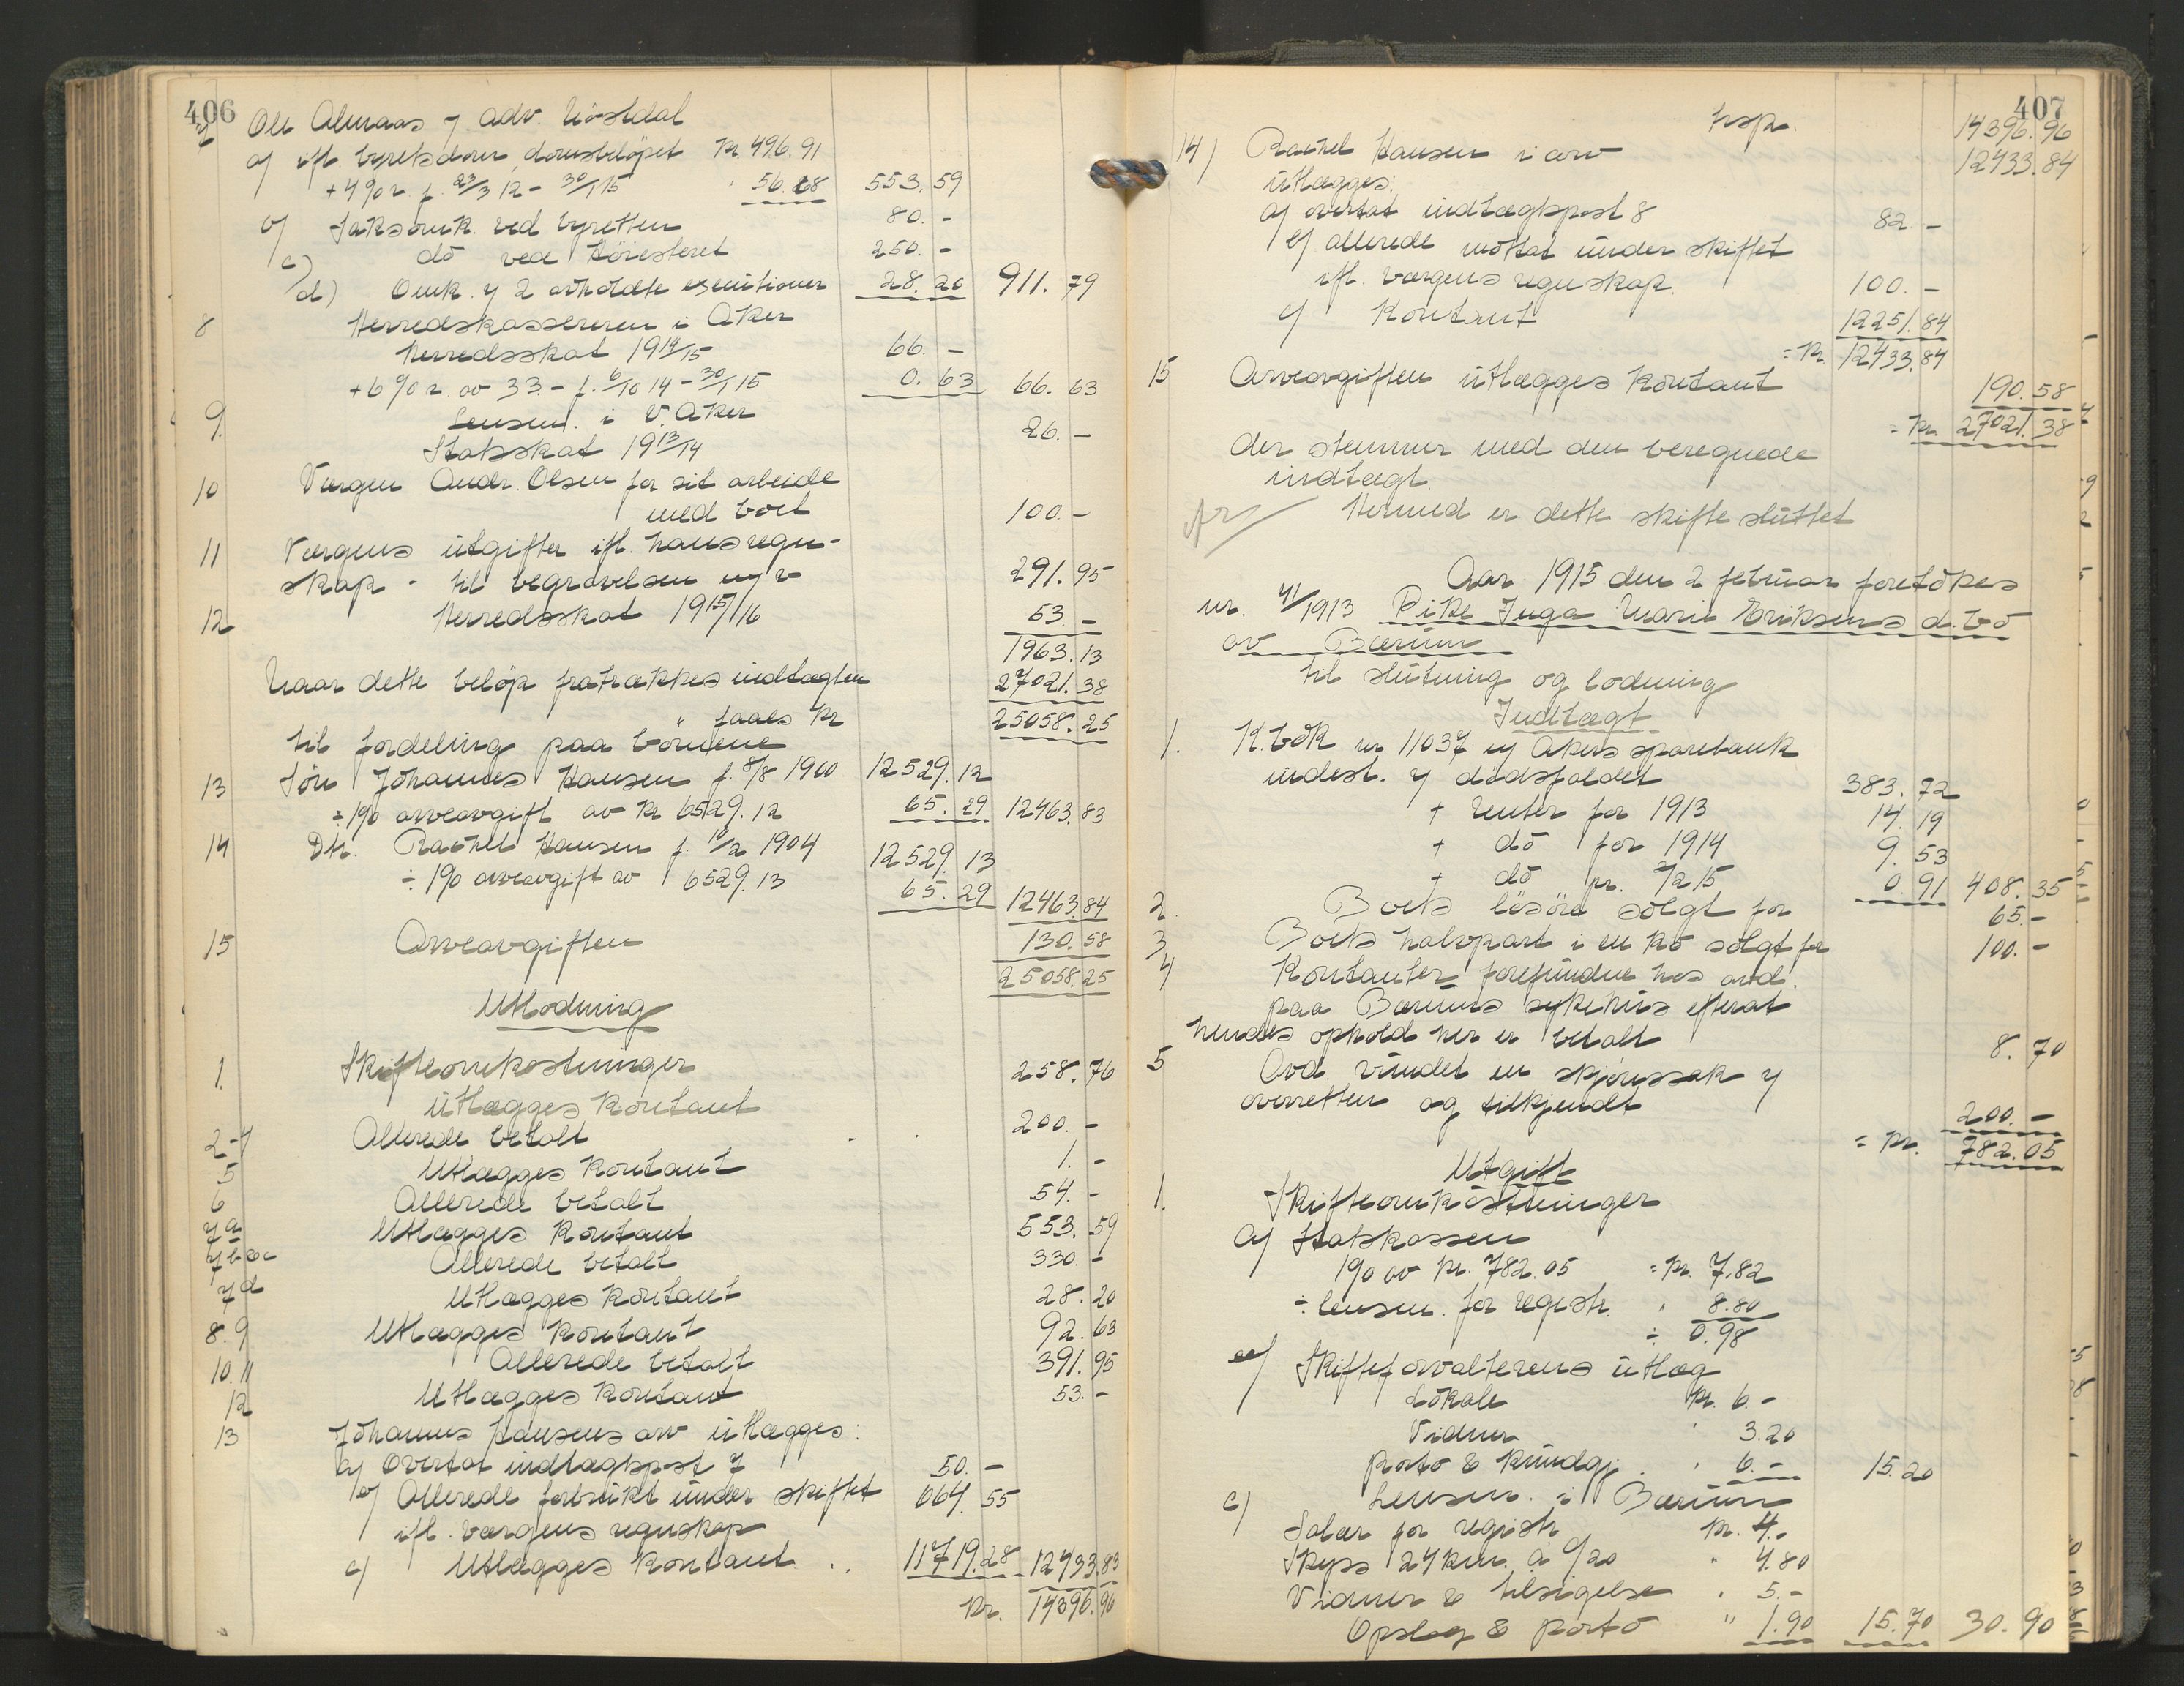 406
7 Ole Almaas v. adv.
a) ifl. byretsdom, domsbeløpet kr 496.91
+ 4% r. f. 23/3 12 - 30/1 15 " 56.68 553.59
b) Saksomk. ved byretten 80. -
c) do ved Höiesteret 250. -
d) Omk. v 2 avholdte executioner 28.20 911.79
8 Herredskassereren i Aker
Herredsskat 1914/15 66. -
+ 6% r. av 33.- f. 6/10 14 - 30/1 15 0.63 66.63
9. Lensm. i V. Aker
Statsskat 1913/14 26. -
10 Værgen Andr. Olsen for sit arbeide
med boet 100. -
11 Værgens utgifter ifl. hans regn-
skap - til begravelsen m v 291.95
12 Herredsskat 1915/16 53. -
1963.13
Naar dette beløp fratrækkes indtægten 27021.38
" faaes kr 25058.25
til fordeling paa børnene
13 Søn Johannes Hansen f. 8/8 1900 12529.12
÷ 1% arveavgift av kr 6529.12 65.29 12463.83
14 Dtr. Rachel Hansen f. 10/2 1904 12529.13
÷ 1% arveavgift av 6529.13 65.29 12463.84
15 Arveavgiften 130.58
25058.25
Utlodning
1. Skifteomkostninger 258.76
utlægges kontant
2-4 Allerede betalt 200. -
5 Utlægges kontant 1. -
6 Allerede betalt 54. -
7 a Utlægges kontant 553.59
7 b & c Allerede betalt 330. -
7 d Utlægges kontant 28.20
8.9 Utlægges kontant 92.63
10.11 Allerede betalt 391.95
12 Utlægges kontant 53. -
13 Johannes Hansens arv utlægges:
a) Overtat indtægtspost 7 50. -
b) Allerede forbrukt under skiftet 664.55
ifl. værgens regnskap
c) Utlægges kontant . . 11719.28 12433.83
kr. 14396.96
407
Trsp. 14396.96
14) Rachel Hansens arv 12433.84
utlægges:
a) overtat indtægtspost 8 82. -
b) allerede mottat under skiftet
ifl. værgens regnskap 100. -
c) Kontant 12251.84
= kr 12433.84
15 Arveavgiften utlægges kontant 190.58
= kr. 27021.38
der stemmer med den beregnede
indtægt.
Hermed er dette skifte sluttet
Aar 1915 den 2 februar foretokes
nr. 41/1913 Pike Inga Marie Eriksens d. bo
av Bærum
til slutning og lodning
Indtægt
1. K. bok nr 11037 i Akers sparebank
indest. v dødsfaldet 383.72
+ renter for 1913 14.19
+ do for 1914 9.53
+ do pr. 7/2 15 0.91 408.35
2. Boets løsøre solgt for 65. -
3 Boets halvpart i en ko solgt for 100. -
4 Kontanter forefundne hos avd.
paa Bærums sykehus efterat
hendes ophold her er betalt 8.70
5 Avd. vundet en skjønssak v
overretten og tilkjendt 200. -
= kr. 782.05
Utgift
1. Skifteomkostninger
a) Statskassen
1% av kr. 782.05 = kr. 7.82
÷ lensm. for registr. " 8.80
÷ 0.98
b) Skifteforvalterens utlæg
Lokale kr. 6. -
Vidner " 3.20
Porto & kundgj. " 6. - 15.20
c) Lensm. i Bærum
Salær for registr kr. 4. -
Skyss 24 km. à 0/20 " 4.80
Vidner & tilsigelse " 5. -
Opslag & porto " 1.90 15.70 30.90